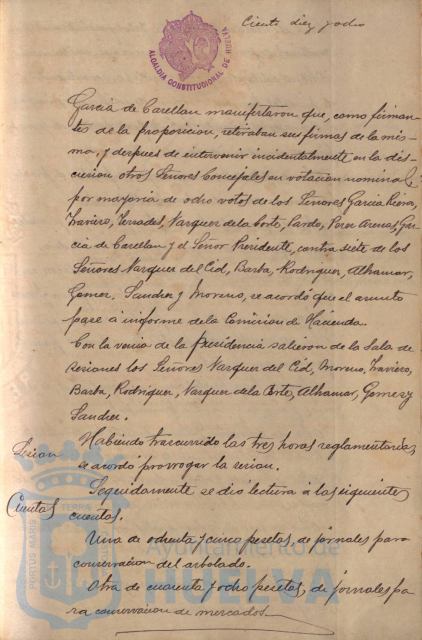 Ciento diez y ocho
ALCALDÍA CONSTITUCIONAL DE HUELVA
García de Carellan manifestaron que, como firman-
tes de la proposicion, retiraban sus firmas de la mis-
ma, y despues de intervenir incidentalmente en la dis-
cusion otros Señores Concejales en votacion nominal y
por mayoria de ocho votos de los Señores Garcia,
Traviero, Terrades, Vazquez de la Corte, Pardo, Perez Arenas, Gar-
cia de Carellan y el Señor Presidente, contra siete de los
Señores Vazquez del Cid, Barba, Rodriguez, Alhamar,
Gomez, Sanchez y Moreno, se acordó que el asunto
pase á informe de la Comision de Hacienda.
Con la venia de la Presidencia salieron de la Sala de
sesiones los Señores Vazquez del Cid, Moreno, Traviero,
Barba, Rodriguez, Vazquez de la Corte, Alhamar, Gomez y
Sanchez.
Sesion
Habiendo trascurrido las tres horas reglamentarias,
se acordó prorrogar la sesion.
Cuentas
Seguidamente se dió lectura á las siguientes
cuentas.
Una de ochenta y cinco pesetas, de jornales para
conservacion del arbolado.
Otra de cuarenta y ocho pesetas, de jornales pa-
ra conservacion de mercados.
PORTUS MARIS TERRA
Ayuntamiento de
HUELVA